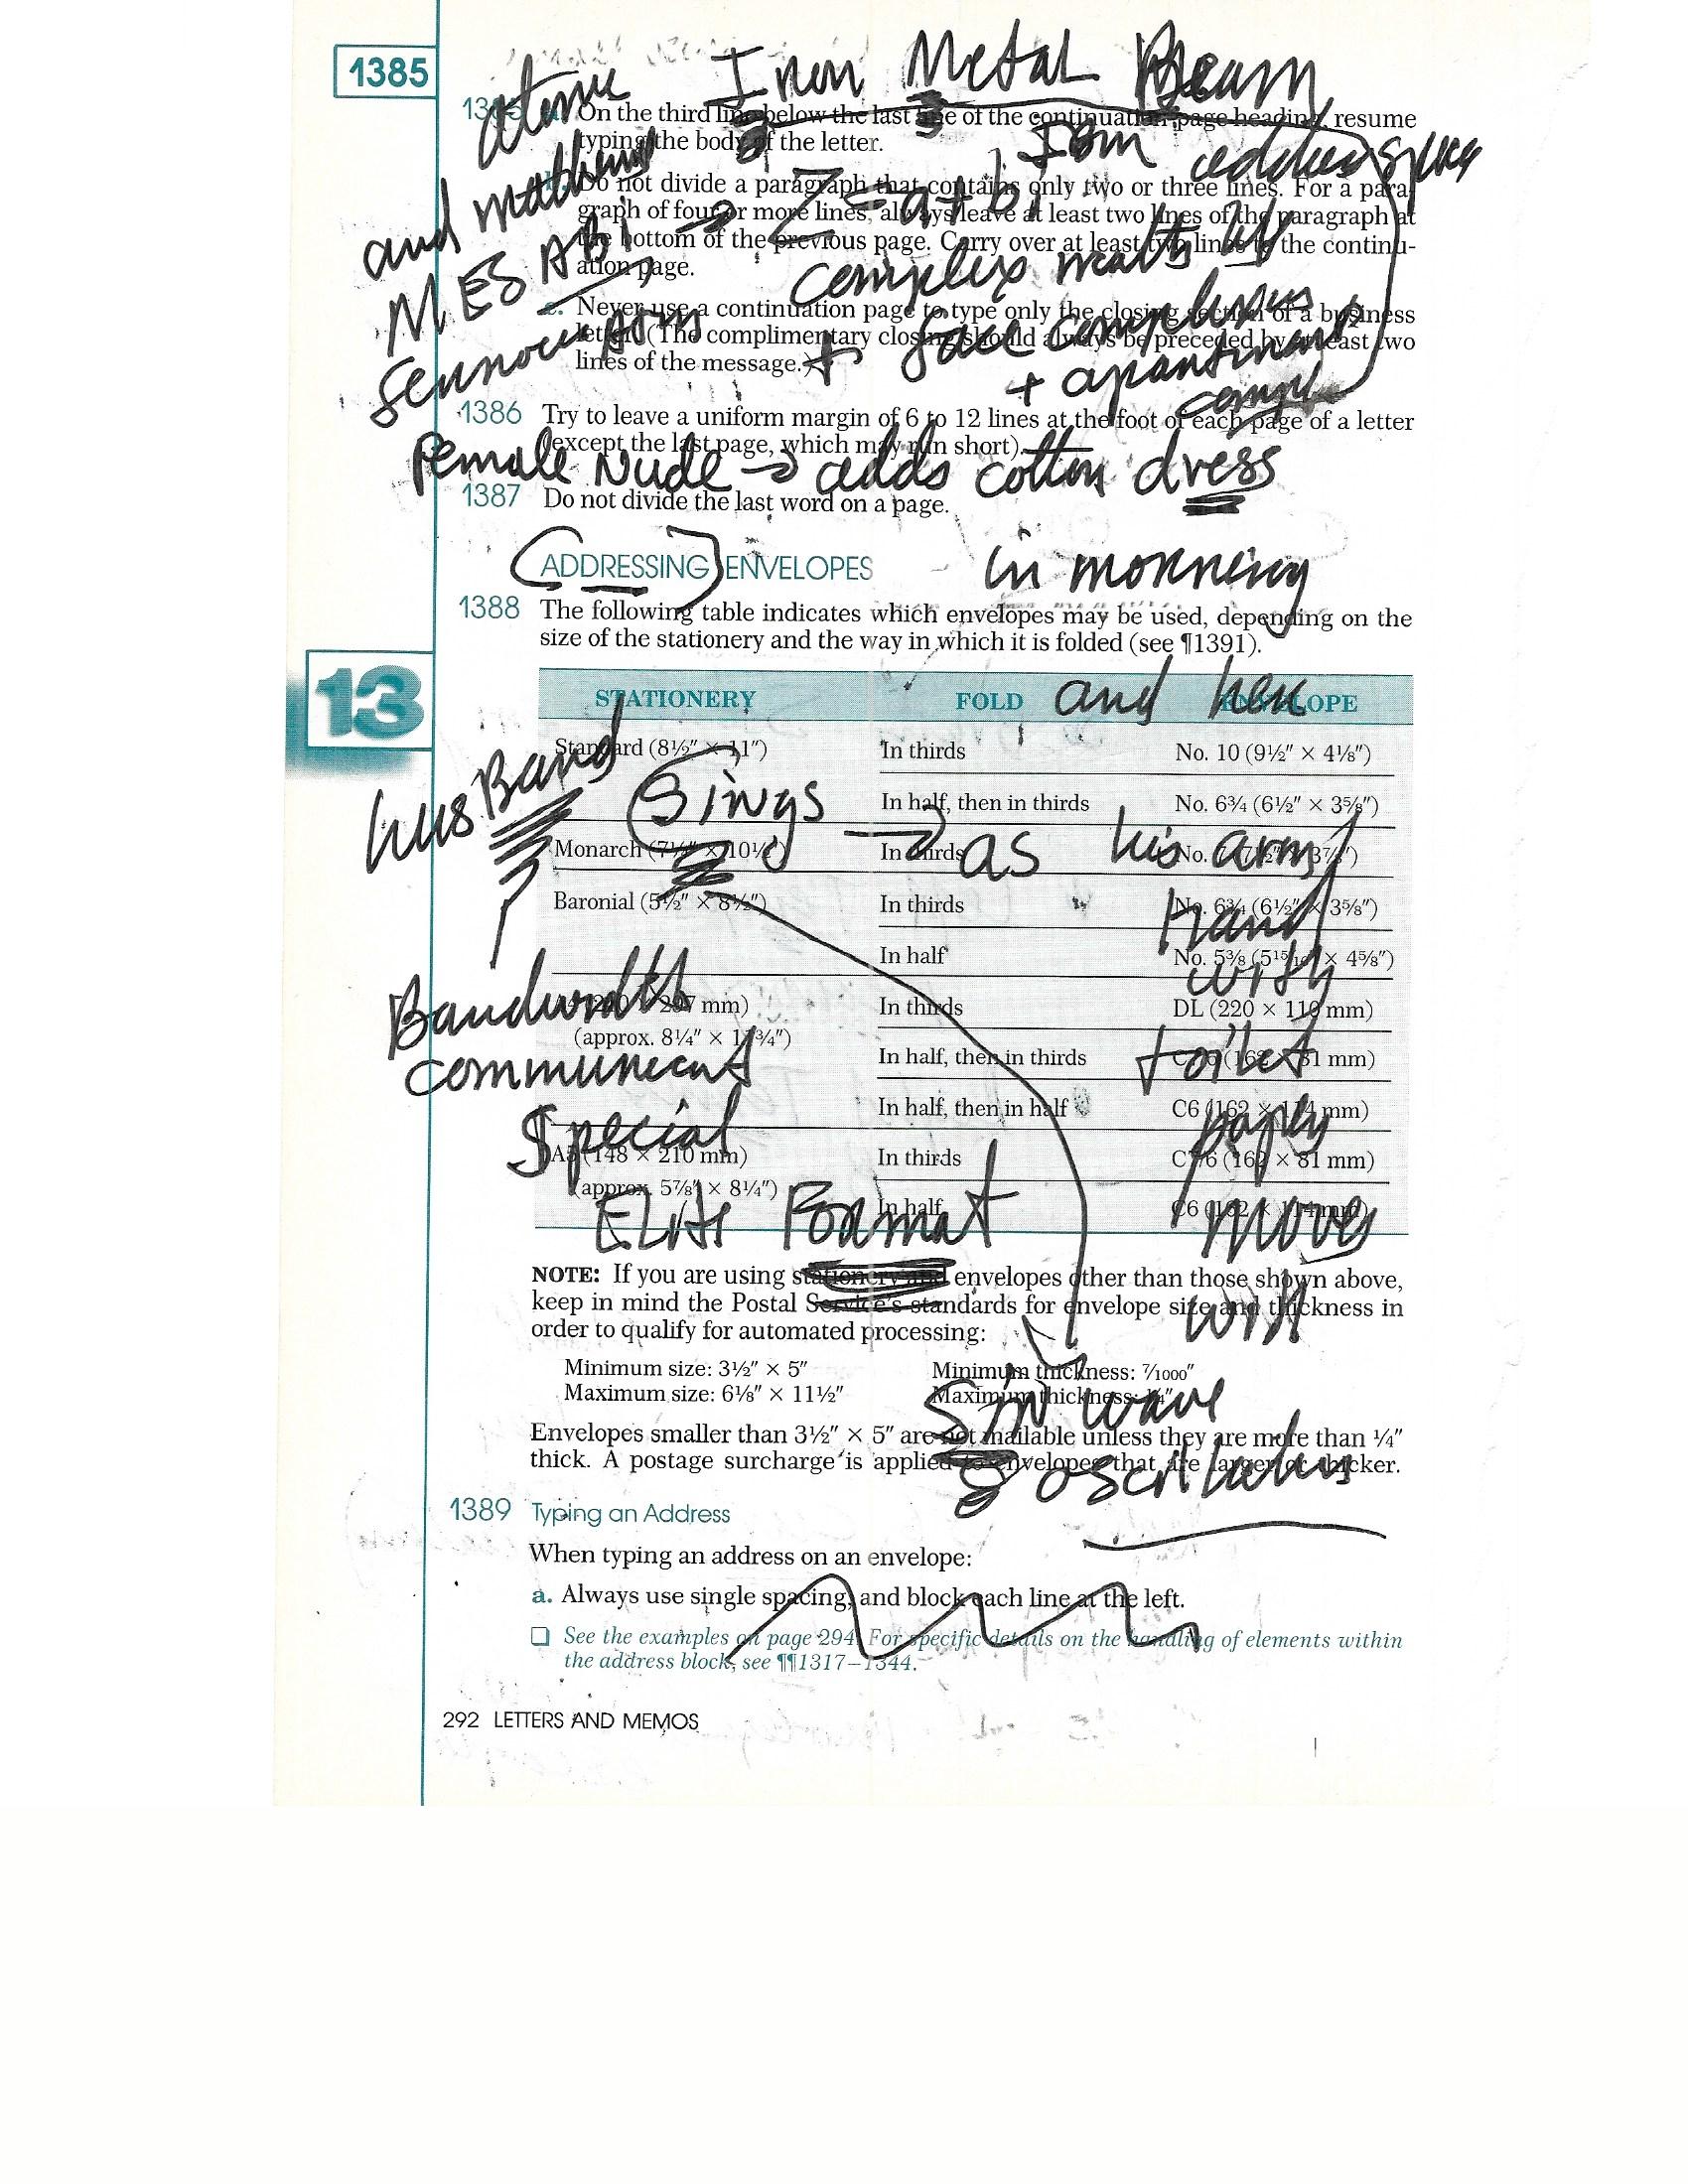 1385
Iron Metal Beam
atomic
1385 a. On the third line below the last line of the continuation-page heading, resume
typing the body of the letter.
IBM address space
and
b. Do not divide a paragraph that contains only two or three lines. For a para-
Z = a + bi
graph of four or more lines, always leave at least two lines of the paragraph at
the bottom of the previous page. Carry over at least two lines to the continu-
ation page.
MESABI
complex math
c. Never use a continuation page to type only the closing section of a business
letter. (The complimentary closing should always be preceded by at least two
lines of the message.)
+ face complexus
+ apartment
complex
1386 Try to leave a uniform margin of 6 to 12 lines at the foot of each page of a letter
(except the last page, which may run short).
Female Nude → adds cotton dress
1387 Do not divide the last word on a page.
ADDRESSING ENVELOPES
in morning
1388 The following table indicates which envelopes may be used, depending on the
size of the stationery and the way in which it is folded (see ¶1391).
13
STATIONERY FOLD ENVELOPE
and her
Standard (8½″ × 11″) In thirds No. 10 (9½″ × 4⅛″)
husBand
Sings → as his arm
In half, then in thirds No. 6¾ (6½″ × 3⅝″)
Monarch (7¼″ × 10½″) In thirds No. 7 (7½″ × 3⅞″)
Baronial (5½″ × 8½″) In thirds No. 6¾ (6½″ × 3⅝″)
Hand
In half No. 5⅜ (5¹⁵⁄₁₆″ × 4⅝″)
with
Bandwidth
A4 (210 × 297 mm) In thirds DL (220 × 110 mm)
(approx. 8¼″ × 11¾″)
In half, then in thirds C7/6 (162 × 81 mm)
toilet
communicat
In half, then in half C6 (162 × 114 mm)
paper
Special
A5 (148 × 210 mm) In thirds C7/6 (162 × 81 mm)
(approx. 5⅞″ × 8¼″)
In half C6 (162 × 114 mm)
Elite Format
moves
NOTE: If you are using stationery and envelopes other than those shown above,
keep in mind the Postal Service's standards for envelope size and thickness in
order to qualify for automated processing:
with
Minimum size: 3½″ × 5″ Minimum thickness: 7/1000″
Maximum size: 6⅛″ × 11½″ Maximum thickness: ¼″
Sin wave
Envelopes smaller than 3½″ × 5″ are not mailable unless they are more than ¼″
thick. A postage surcharge is applied to envelopes that are larger or thicker.
1389 Typing an Address
When typing an address on an envelope:
a. Always use single spacing, and block each line at the left.
❑ See the examples on page 294. For specific details on the handling of elements within
the address block, see ¶¶1317–1344.
292 LETTERS AND MEMOS